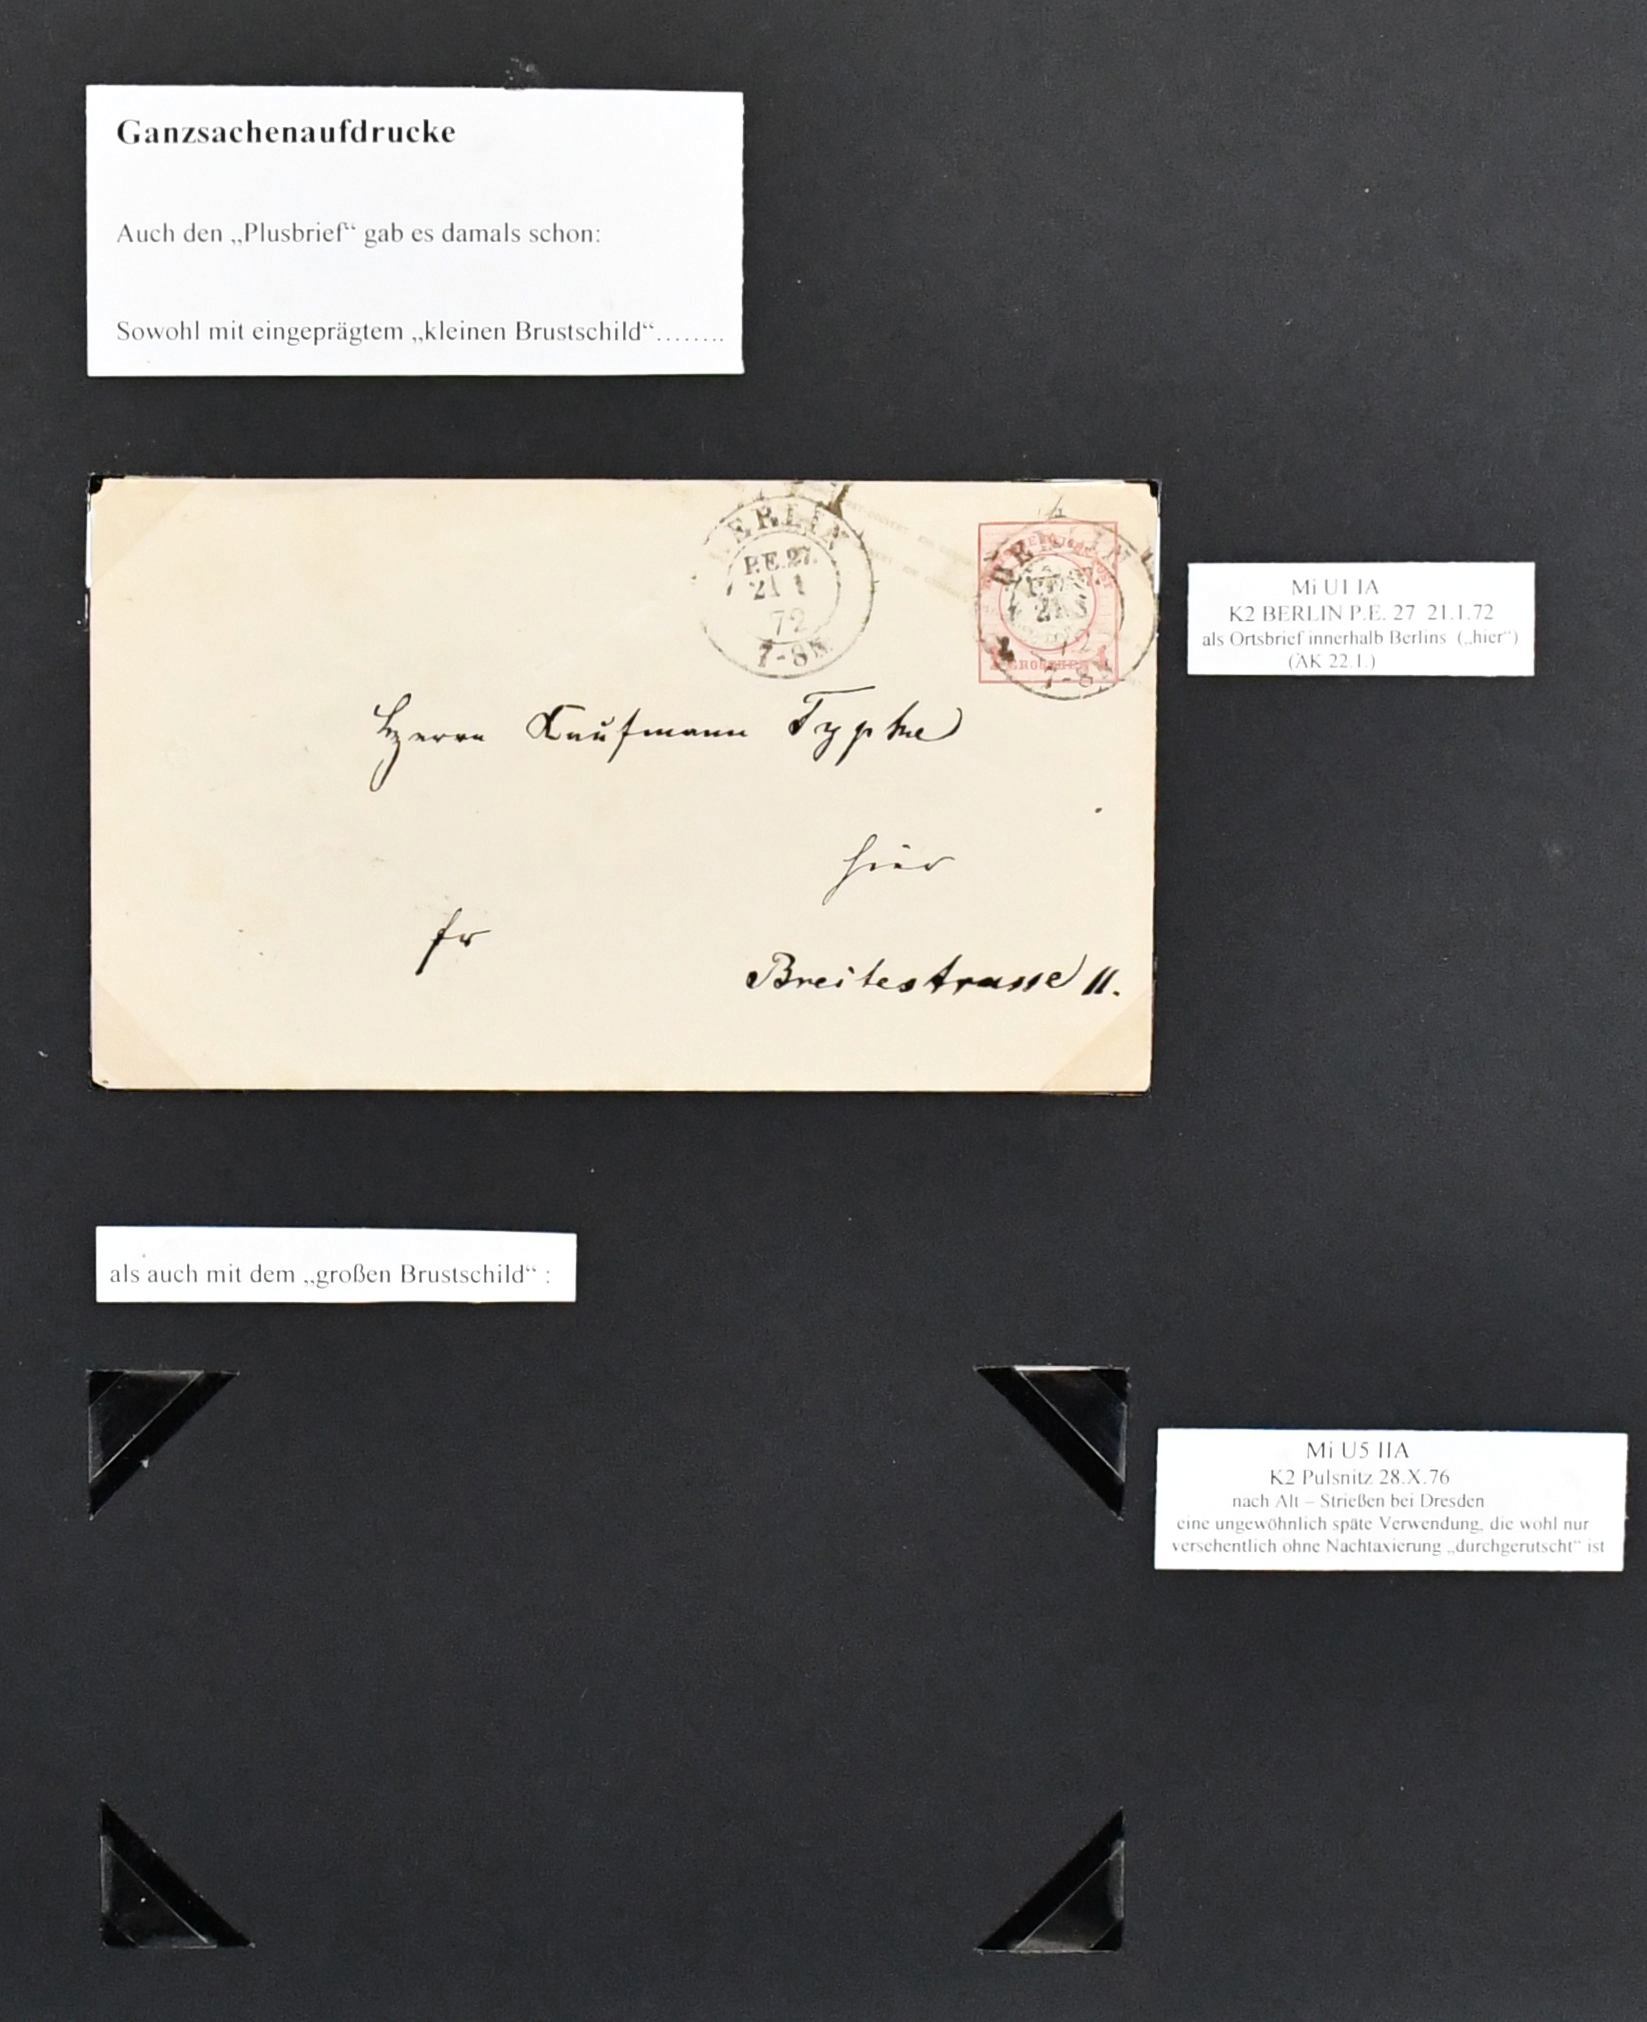 Ganzsachenaufdrucke
Auch den „Plusbrief“ gab es damals schon:
Sowohl mit eingeprägtem „kleinen Brustschild“........
BERLIN
P.E.27.
21 1
72
7-8N
1 GROSCHEN 1
7-8
Herrn Kaufmann
hier
fr
Breitestrasse 11.
Mi U1 IA
K2 BERLIN P.E. 27 21.1.72
als Ortsbrief innerhalb Berlins („hier“)
(AK 22.1.)
als auch mit dem „großen Brustschild“ :
Mi U5 IIA
K2 Pulsnitz 28.X.76
nach Alt – Strießen bei Dresden
eine ungewöhnlich späte Verwendung, die wohl nur
versehentlich ohne Nachtaxierung „durchgerutscht“ ist